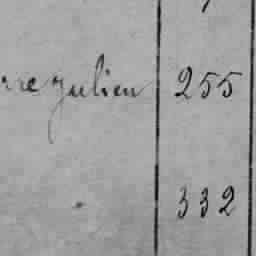 rre Julien 255
332